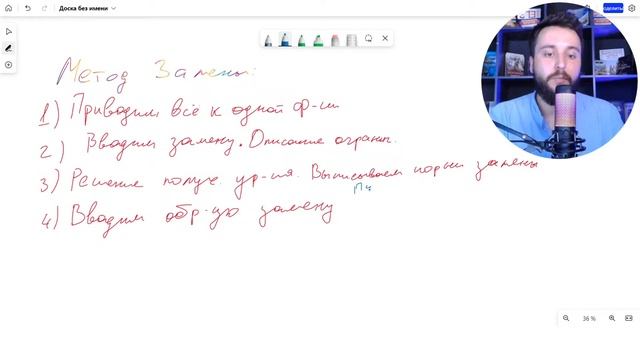 Доска без имени
Метод Замены:
1) Приводим всё к одной ф-ии
2) Вводим замену. Описание огранич.
3) Решение получ. ур-ия. Выписываем корни замены
4) Вводим обр-ую замену
36 %